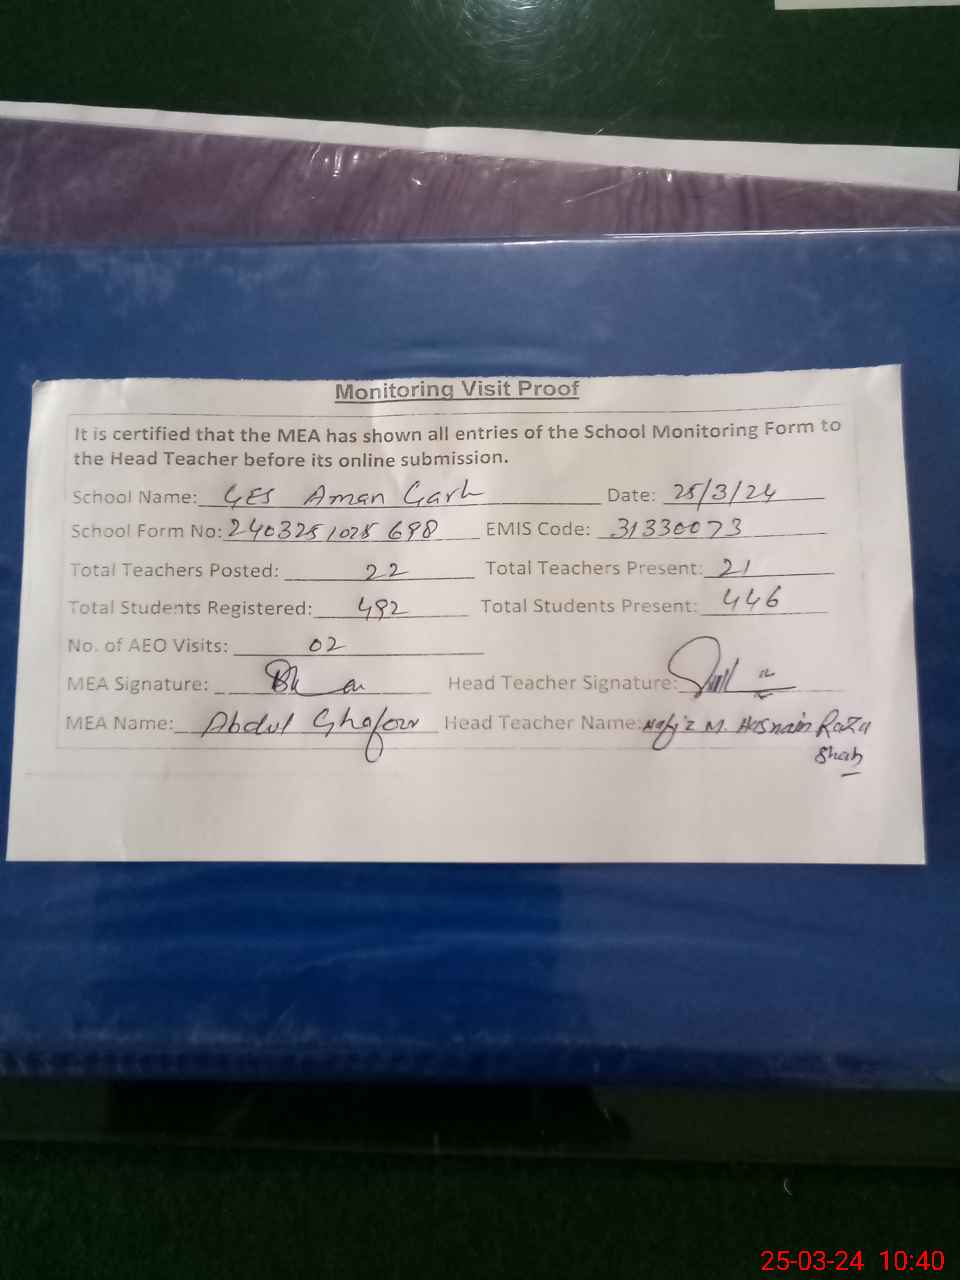 Monitoring Visit Proof
It is certified that the MEA has shown all entries of the School Monitoring Form to
the Head Teacher before its online submission.
School Name: GES Aman Garh Date: 25/3/24
School Form No: 2403251025698 EMIS Code: 31330073
Total Teachers Posted: 22 Total Teachers Present: 21
Total Students Registered: 492 Total Students Present: 446
No. of AEO Visits: 02
MEA Signature: Head Teacher Signature:
MEA Name: Abdul Ghafoor Head Teacher Name: Hafiz M. Hasnain Raza
Shah
25-03-24 10:40